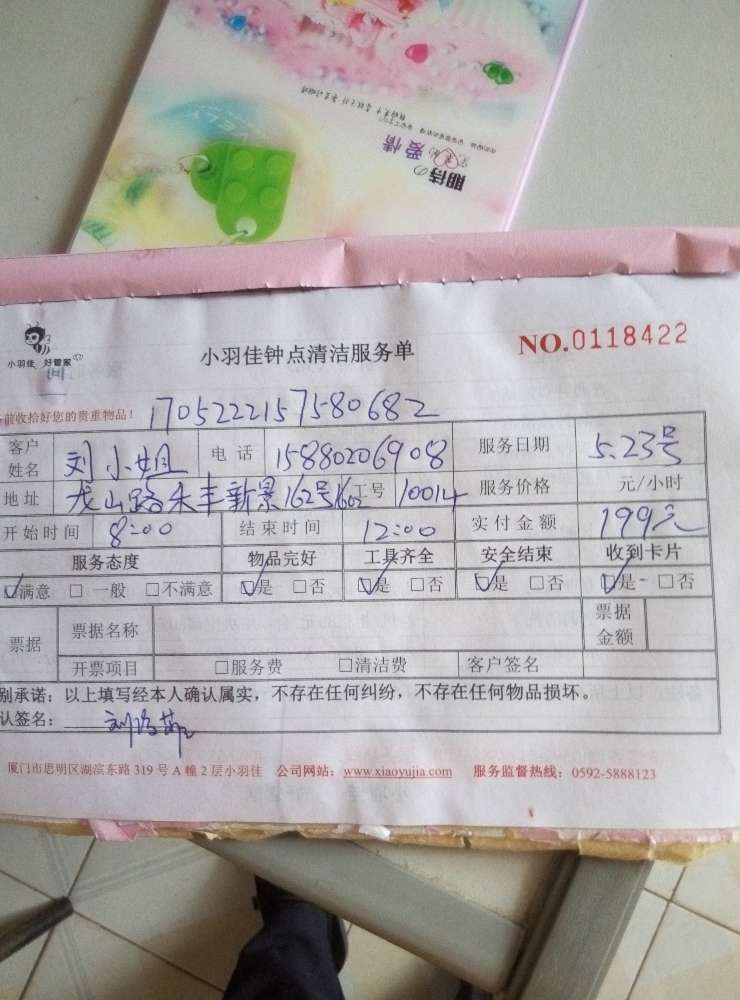 期待の
完美的爱情
VELY
小羽佳 好管家
小羽佳钟点清洁服务单
NO.0118422
前收拾好您的贵重物品！ 170522215758068​2
客户姓名 刘小姐 电话 15880206908 服务日期 5.23号
地址 龙山路禾丰新景162号1602 工号 10014 服务价格 元/小时
开始时间 8:00 结束时间 12:00 实付金额 199元
服务态度 物品完好 工具齐全 安全结束 收到卡片
☑满意 □一般 □不满意 ☑是 □否 ☑是 □否 ☑是 □否 ☑是 □否
票据 票据名称 票据金额
开票项目 □服务费 □清洁费 客户签名
别承诺：以上填写经本人确认属实，不存在任何纠纷，不存在任何物品损坏。
认签名：
厦门市思明区湖滨东路 319 号 A 幢 2 层小羽佳 公司网站：www.xiaoyujia.com 服务监督热线：0592-5888123